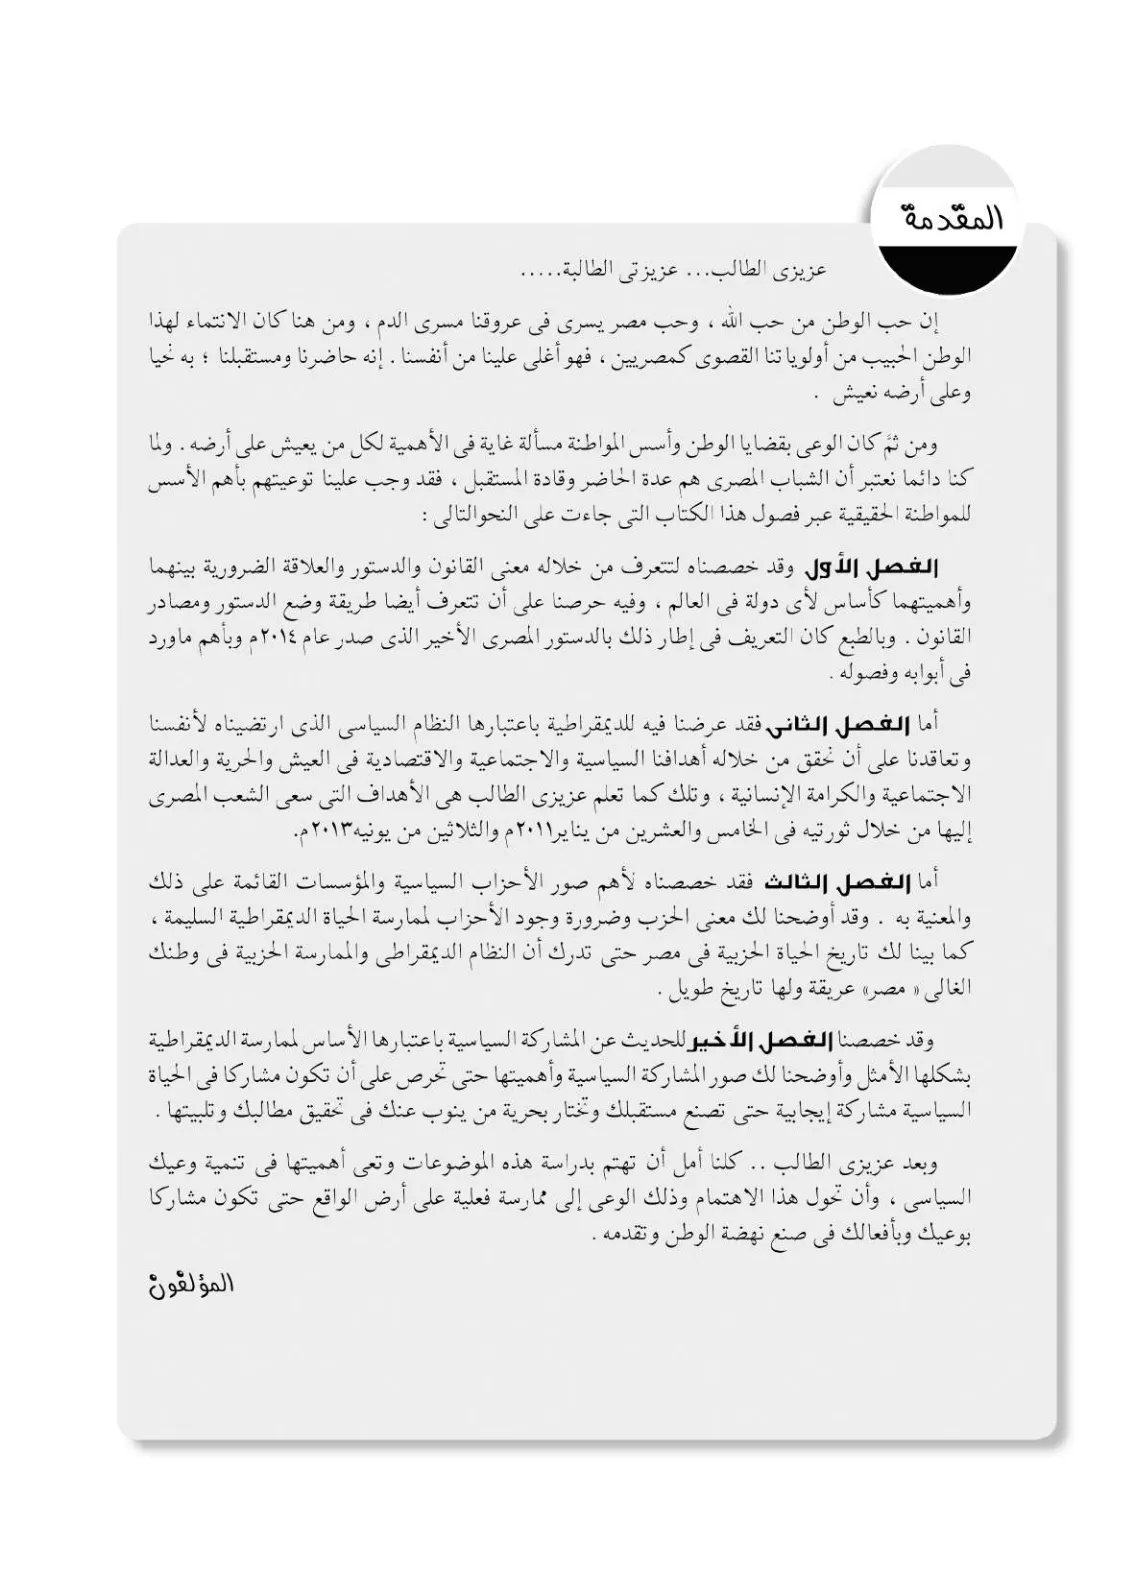 المقدمة
عزيزى الطالب... عزيزتى الطالبة.....
إن حب الوطن من حب الله ، وحب مصر يسرى فى عروقنا مسرى الدم ، ومن هنا كان الانتماء لهذا
الوطن الحبيب من أولوياتنا القصوى كمصريين ، فهو أغلى علينا من أنفسنا . إنه حاضرنا ومستقبلنا ؛ به نحيا
وعلى أرضه نعيش .
ومن ثمَّ كان الوعى بقضايا الوطن وأسس المواطنة مسألة غاية فى الأهمية لكل من يعيش على أرضه . ولما
كنا دائما نعتبر أن الشباب المصرى هم عدة الحاضر وقادة المستقبل ، فقد وجب علينا توعيتهم بأهم الأسس
للمواطنة الحقيقية عبر فصول هذا الكتاب التى جاءت على النحوالتالى :
الفصل الأول وقد خصصناه لتتعرف من خلاله معنى القانون والدستور والعلاقة الضرورية بينهما
وأهميتهما كأساس لأى دولة فى العالم ، وفيه حرصنا على أن تتعرف أيضا طريقة وضع الدستور ومصادر
القانون . وبالطبع كان التعريف فى إطار ذلك بالدستور المصرى الأخير الذى صدر عام ٢٠١٤م وبأهم ماورد
فى أبوابه وفصوله .
أما الفصل الثانى فقد عرضنا فيه للديمقراطية باعتبارها النظام السياسى الذى ارتضيناه لأنفسنا
وتعاقدنا على أن نحقق من خلاله أهدافنا السياسية والاجتماعية والاقتصادية فى العيش والحرية والعدالة
الاجتماعية والكرامة الإنسانية ، وتلك كما تعلم عزيزى الطالب هى الأهداف التى سعى الشعب المصرى
إليها من خلال ثورتيه فى الخامس والعشرين من يناير٢٠١١م والثلاثين من يونيه٢٠١٣م.
أما الفصل الثالث فقد خصصناه لأهم صور الأحزاب السياسية والمؤسسات القائمة على ذلك
والمعنية به . وقد أوضحنا لك معنى الحزب وضرورة وجود الأحزاب لممارسة الحياة الديمقراطية السليمة ،
كما بينا لك تاريخ الحياة الحزبية فى مصر حتى تدرك أن النظام الديمقراطى والممارسة الحزبية فى وطنك
الغالى « مصر» عريقة ولها تاريخ طويل .
وقد خصصنا الفصل الأخير للحديث عن المشاركة السياسية باعتبارها الأساس لممارسة الديمقراطية
بشكلها الأمثل وأوضحنا لك صور المشاركة السياسية وأهميتها حتى تحرص على أن تكون مشاركا فى الحياة
السياسية مشاركة إيجابية حتى تصنع مستقبلك وتختار بحرية من ينوب عنك فى تحقيق مطالبك وتلبيتها .
وبعد عزيزى الطالب .. كلنا أمل أن تهتم بدراسة هذه الموضوعات وتعى أهميتها فى تنمية وعيك
السياسى ، وأن تحول هذا الاهتمام وذلك الوعى إلى ممارسة فعلية على أرض الواقع حتى تكون مشاركا
بوعيك وبأفعالك فى صنع نهضة الوطن وتقدمه .
المؤلفون